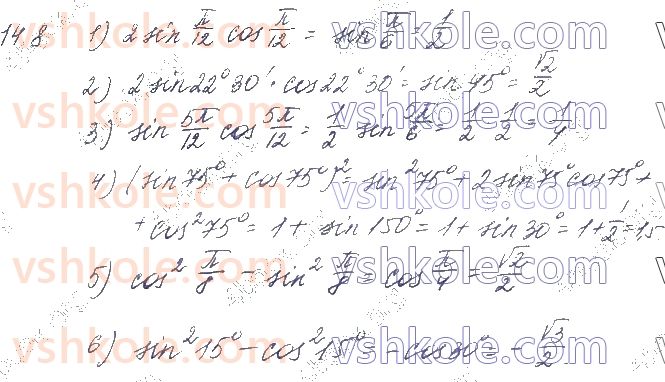 14.8 1) 2 sin π/12 cos π/12 = sin π/6 = 1/2
2) 2 sin 22°30' · cos 22°30' = sin 45° = √2/2
3) sin 5π/12 cos 5π/12 = 1/2 sin 5π/6 = 1/2 · 1/2 = 1/4
4) (sin 75° + cos 75°)² = sin² 75° + 2 sin 75° cos 75° +
+ cos² 75° = 1 + sin 150° = 1 + sin 30° = 1 + 1/2 = 1,5
5) cos² π/8 − sin² π/8 = cos π/4 = √2/2
6) sin² 15° − cos² 15° = − cos 30° = − √3/2
vshkole.com